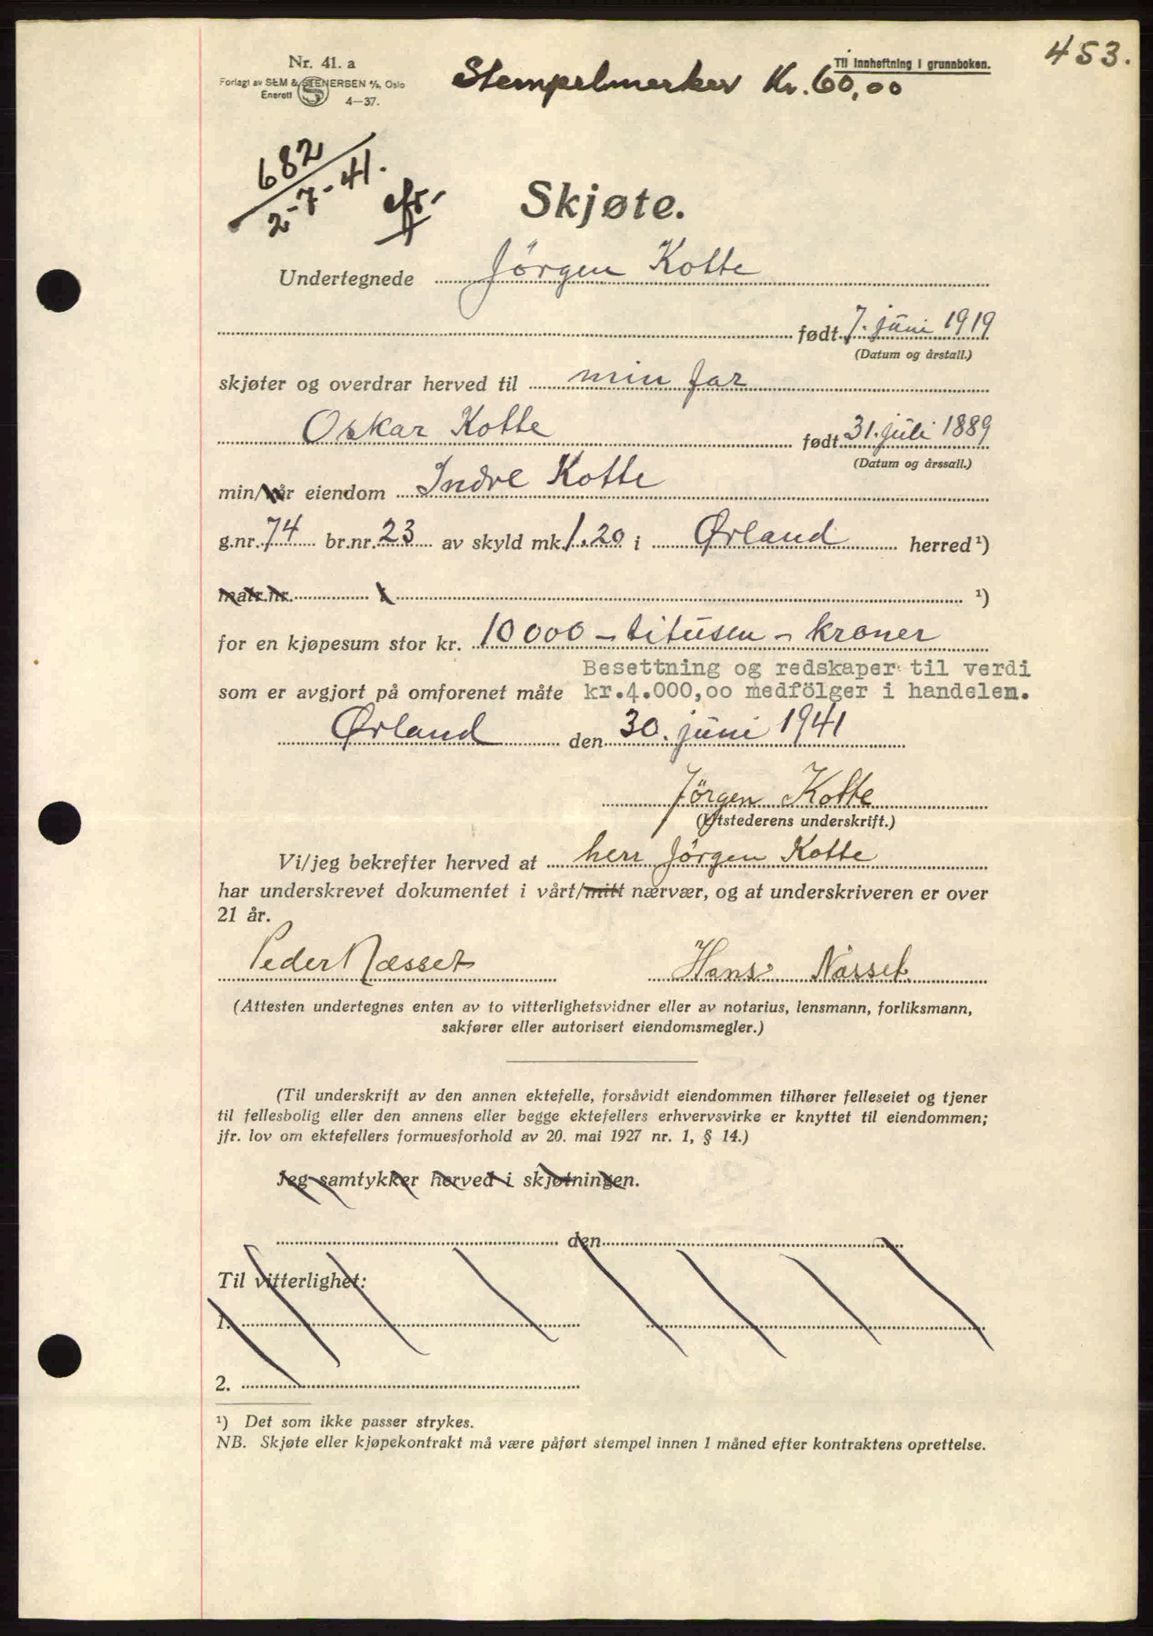 453.
Nr. 41. a
Til innheftning i grunnboken.
Forlagt av SEM & STENERSEN A/S, Oslo
Enerett S 4—37.
Stempelmerker Kr. 60,00
682
2-7-41.
Skjøte.
Undertegnede Jörgen Kotte
født 7. juni 1919
(Datum og årstall.)
skjøter og overdrar herved til min far
Oskar Kotte født 31. juli 1889
(Datum og årssall.)
min/vår eiendom Indre Kotte
g.nr. 74 br.nr. 23 av skyld mk. 1.20 i Ørland herred ¹)
matr.nr. i ¹)
for en kjøpesum stor kr. 10 000 – titusen – kroner
Besettning og redskaper til verdi
som er avgjort på omforenet måte kr.4.000,oo medfölger i handelen.
Ørland den 30. juni 1941
Jörgen Kotte
(Utstederens underskrift.)
Vi/jeg bekrefter herved at herr Jörgen Kotte
har underskrevet dokumentet i vårt/mitt nærvær, og at underskriveren er over
21 år.
Peder Næsset Hans Nässet
(Attesten undertegnes enten av to vitterlighetsvidner eller av notarius, lensmann, forliksmann,
sakfører eller autorisert eiendomsmegler.)
(Til underskrift av den annen ektefelle, forsåvidt eiendommen tilhører felleseiet og tjener
til fellesbolig eller den annens eller begge ektefellers erhvervsvirke er knyttet til eiendommen;
jfr. lov om ektefellers formuesforhold av 20. mai 1927 nr. 1, § 14.)
Jeg samtykker herved i skjøtningen.
den
Til vitterlighet:
1.
2.
¹) Det som ikke passer strykes.
NB. Skjøte eller kjøpekontrakt må være påført stempel innen 1 måned efter kontraktens oprettelse.